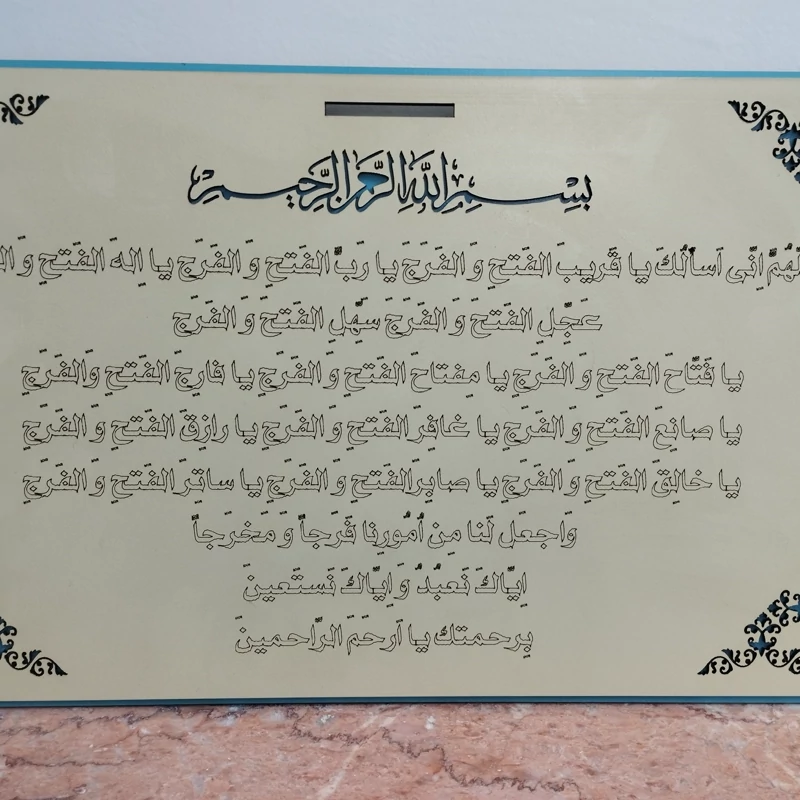 بِسْمِ اللَّهِ الرَّحْمَنِ الرَّحِيمِ
اِنّی اَسأَلُكَ یا قَریبَ الفَتحِ وَ الفَرَجِ یا رَبَّ الفَتحِ وَ الفَرَجِ یا اِلهَ الفَتحِ وَ
عَجِّلِ الفَتحَ وَ الفَرَجَ سَهِّلِ الفَتحَ وَ الفَرَجَ
یا فَتّاحَ الفَتحِ وَ الفَرَجِ یا مِفتاحَ الفَتحِ وَ الفَرَجِ یا فارِجَ الفَتحِ وَالفَرَجِ
یا صانِعَ الفَتحِ وَ الفَرَجِ یا غافِرَ الفَتحِ وَ الفَرَجِ یا رازِقَ الفَتحِ وَ الفَرَجِ
یا خالِقَ الفَتحِ وَ الفَرَجِ یا صابِرَ الفَتحِ وَ الفَرَجِ یا ساتِرَ الفَتحِ وَ الفَرَجِ
وَاجعَل لَنا مِن اُمُورِنا فَرَجاً وَ مَخرَجاً
اِیّاكَ نَعبُدُ وَ اِیّاكَ نَستَعینَ
بِرحمتك یا اَرحَمَ الرّاحمینَ